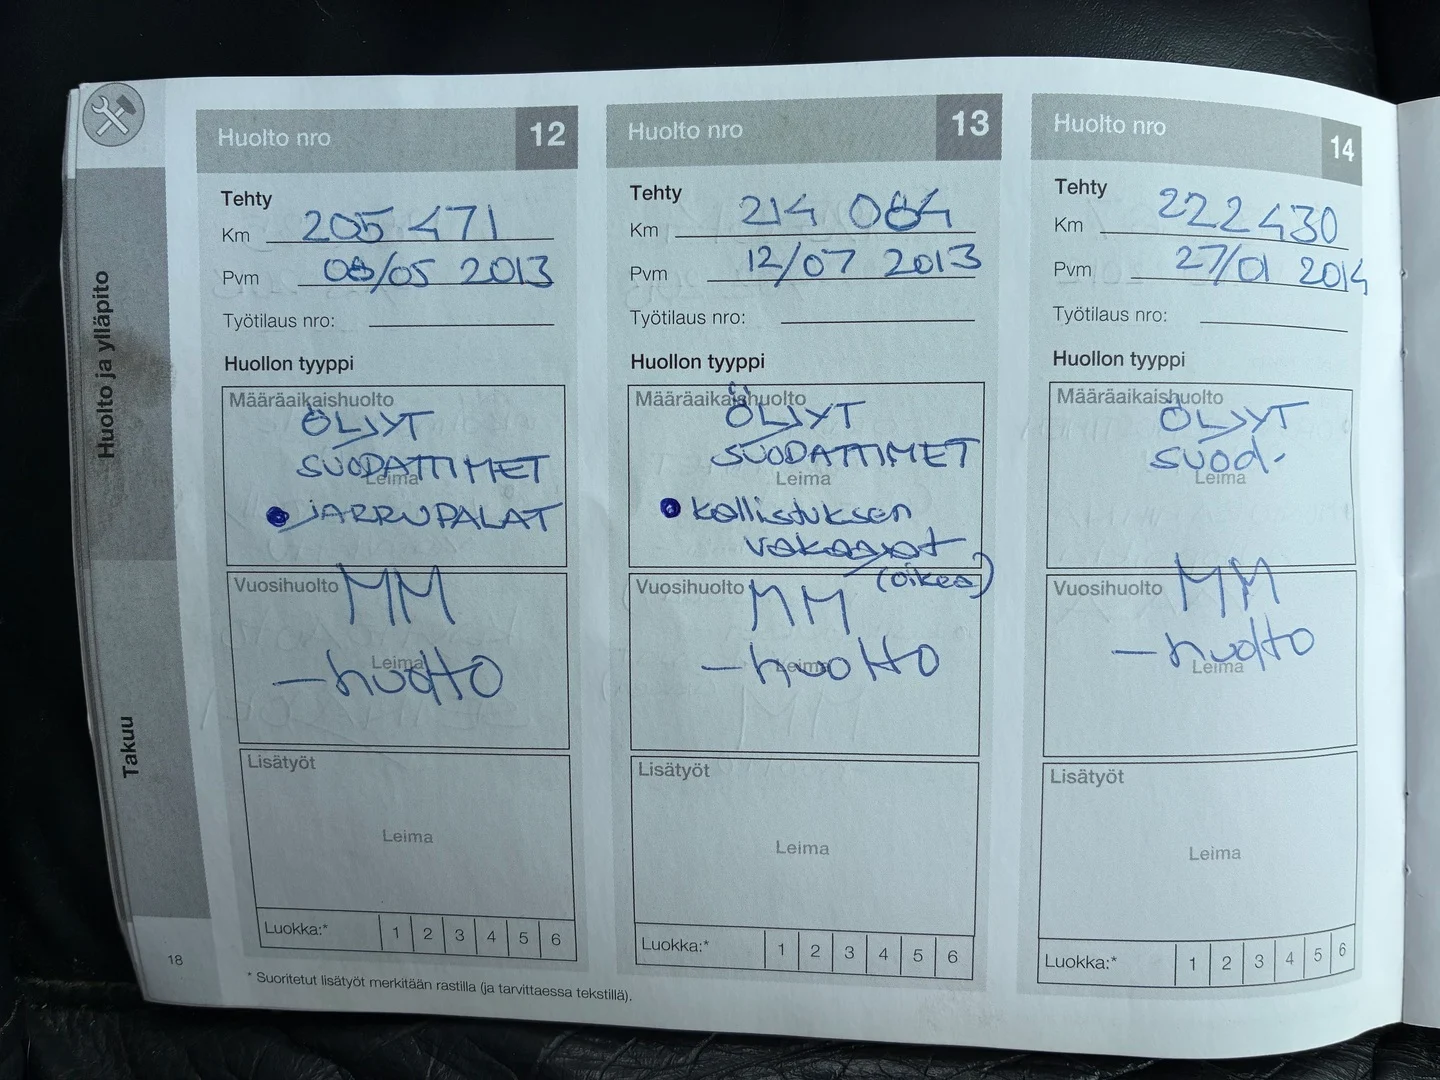 Huolto ja ylläpito
Takuu
Huolto nro 12
Tehty
Km 205 471
Pvm 08/05 2013
Työtilaus nro:
Huollon tyyppi
Määräaikaishuolto
ÖLJYT
SUODATTIMET
Leima
JARRUPALAT
Vuosihuolto
MM
Leima
-huolto
Lisätyöt
Leima
Luokka:* 1 2 3 4 5 6
18
* Suoritetut lisätyöt merkitään rastilla (ja tarvittaessa tekstillä).
Huolto nro 13
Tehty
Km 214 064
Pvm 12/07 2013
Työtilaus nro:
Huollon tyyppi
Määräaikaishuolto
ÖLJYT
SUODATTIMET
Leima
kallistuksen
vakaajat
(oikea)
Vuosihuolto
MM
Leima
-huolto
Lisätyöt
Leima
Luokka:* 1 2 3 4 5 6
Huolto nro 14
Tehty
Km 222430
Pvm 27/01 2014
Työtilaus nro:
Huollon tyyppi
Määräaikaishuolto
ÖLJYT
suod.
Leima
Vuosihuolto
MM
-huolto
Leima
Lisätyöt
Leima
Luokka:* 1 2 3 4 5 6